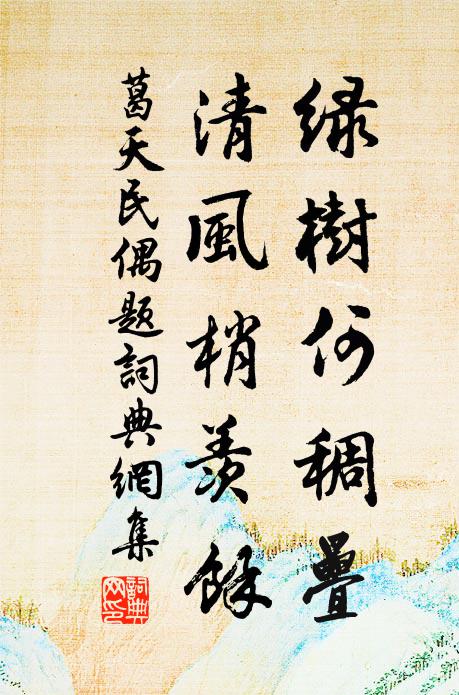 緑樹何稠疊
清風梢羨餘
葛天民偶题詞典網集
詞典
网印